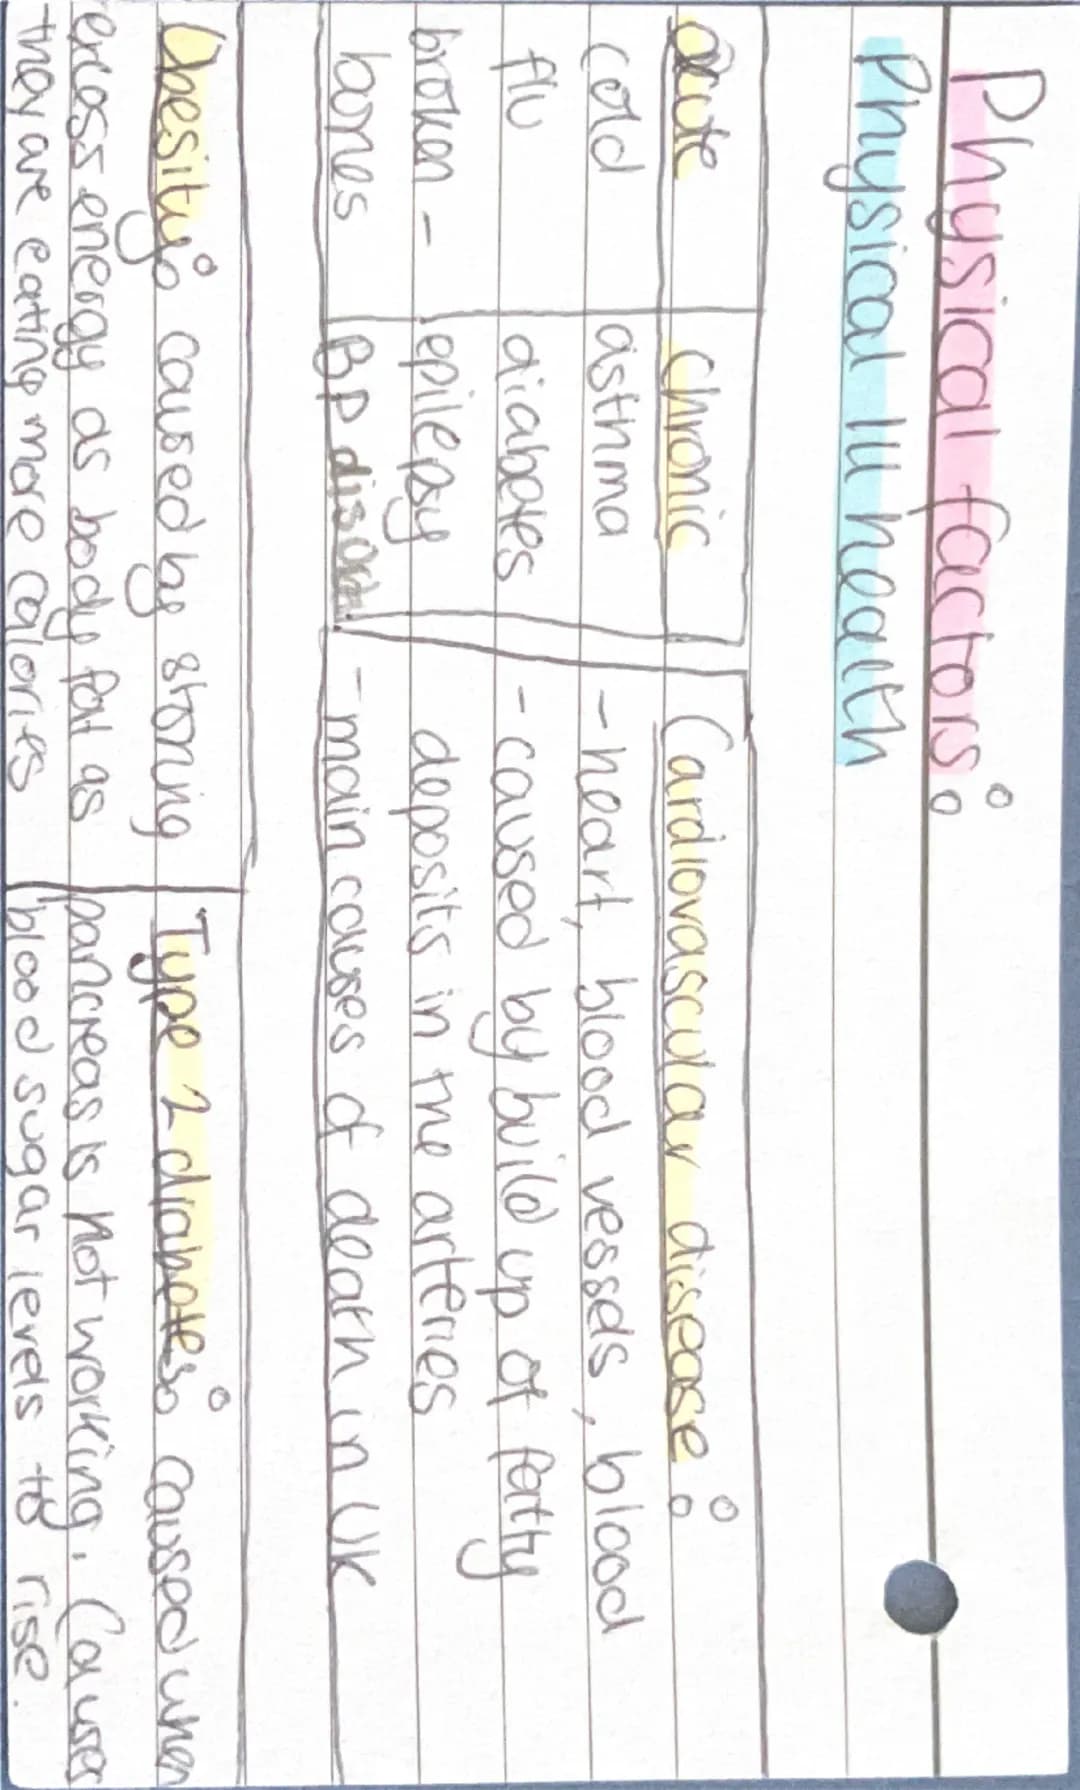 Physical factors:
Physical Ill health
acute
cold
flu
broken -
bones
chronic
asthma
diabetes
epilepsy
BP disord.
Cardiovascular disease:
- heart, blood vessels, blood
- caused by build up of fatty
deposits in the arteries
- main causes of death in UK
Obesity: caused by storing
excess energy as body fat as
they are eating more calories
Type 2 diabetes: caused when
pancreas is not working. Causes
blood sugar levels to rise.